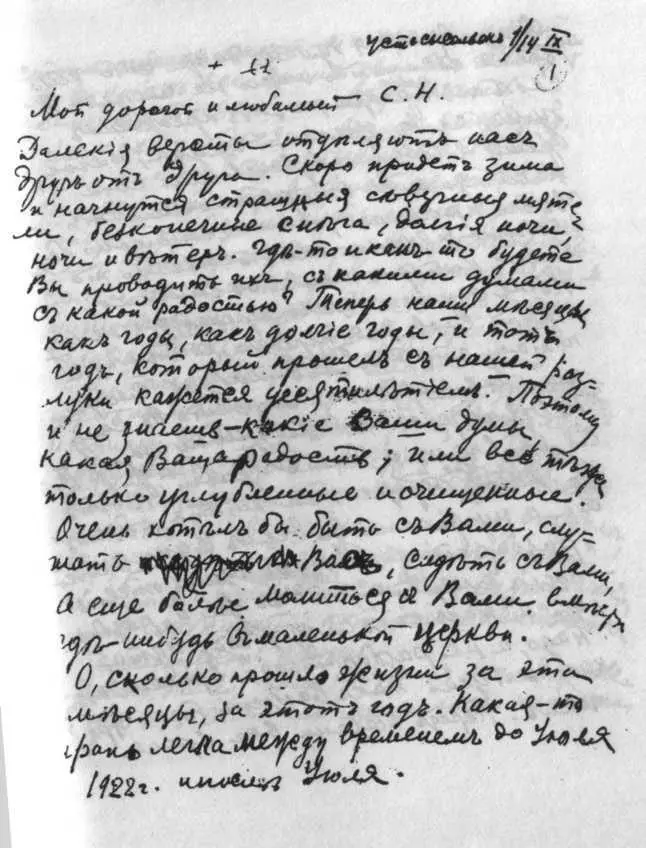 Устьсысольск 1/14 IX
1
+
Мой дорогой и любимый С. Н.
Далекія версты отдѣляютъ насъ
другъ отъ друга. Скоро придетъ зима
и начнутся страшныя сѣверныя мяте-
ли, безконечные снѣга, долгія ночи,
ночи и вѣтеръ. Гдѣ-то и какъ-то будете
Вы проводить ихъ, съ какими думами
съ какой радостью? Теперь наши мѣсяцы
какъ годы, какъ долгіе годы, и тотъ
годъ, который прошелъ съ нашей раз-
луки кажется десятилѣтіемъ. Поэтому
и не знаешь - какіе Ваши думы,
какая Ваша радость; или всѣ тѣ же
только углубленные и очищенные.
Очень хотѣлъ бы быть съ Вами, слу-
шать Васъ, сидѣть съ Вами,
А еще болѣе молиться съ Вами вмѣстѣ
гдѣ-нибудь въ маленькой церкви.
О, сколько прошло жизни за эти
мѣсяцы, за этотъ годъ. Какая-то
грань легла между временемъ до Іюля
1922 г. и послѣ Іюля.